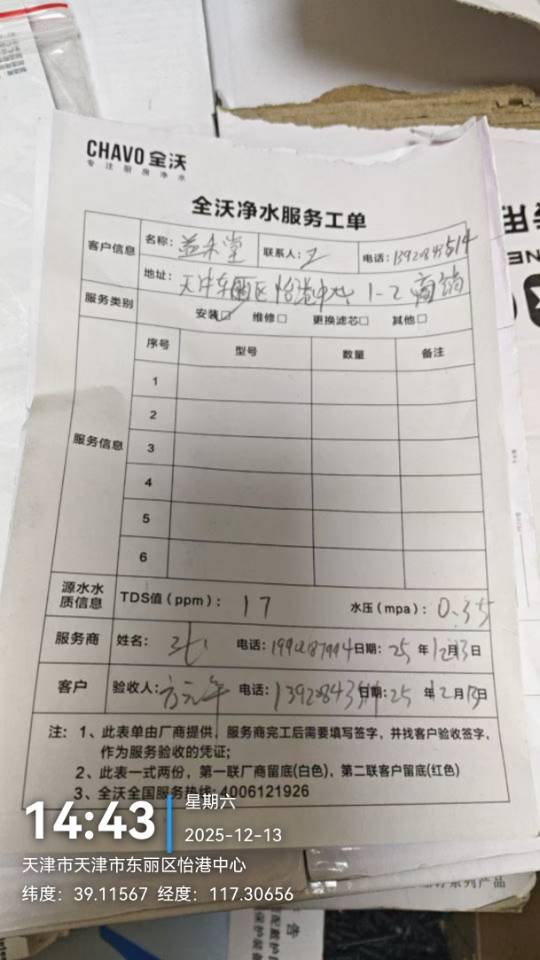 CHAVO 全沃
专注厨房净水
全沃净水服务工单
客户信息 名称：益禾堂 联系人： 电话：
地址：天津东丽区怡港中心 1-2 商铺
服务类别 安装☑ 维修□ 更换滤芯□ 其他□
服务信息 序号 型号 数量 备注
1
2
3
4
5
6
源水水质信息 TDS值（ppm）：17 水压（mpa）：0.35
服务商 姓名： 电话： 日期：25 年 12 月 13 日
客户 验收人： 电话： 日期：25 年 12 月 13 日
注：1、此表单由厂商提供，服务商完工后需要填写签字，并找客户验收签字，
作为服务验收的凭证；
2、此表一式两份，第一联厂商留底(白色)，第二联客户留底(红色)
3、全沃全国服务热线：4006121926
14:43
星期六
2025-12-13
天津市天津市东丽区怡港中心
纬度：39.11567 经度：117.30656
系列产品